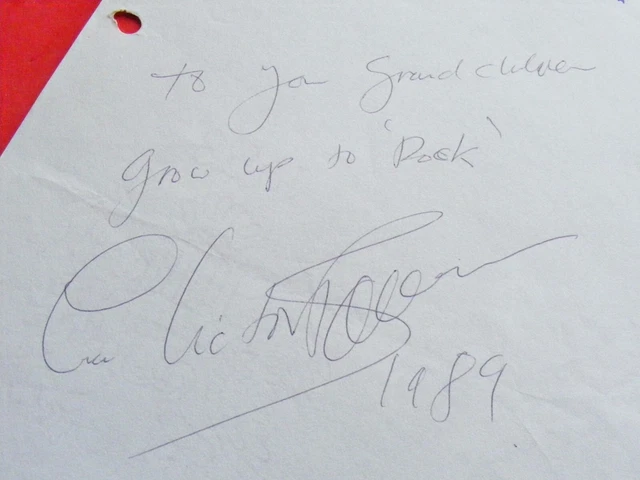 To You Grandchildren
grow up to 'Rock'
Victor
1989